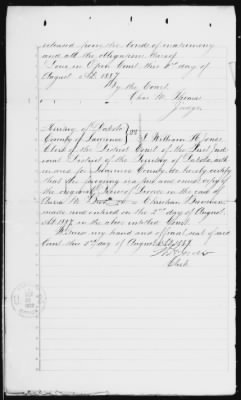 released from the bonds of matrimony
and all the obligations thereof
Done in Open Court this 2nd day of
August A.D. 1887
By the Court
Chas M. Thomas
Judge
Territory of Dakota
County of Lawrence } SS
I William H. Jones
Clerk of the District Court of the First Jud
icial District of the Territory of Dakota, with
in and for Lawrence County, do hereby certify
that the foregoing is a full and correct copy of
the original Decree of Divorce in the case of
Clara M. vs Christian
made and entered on the 2nd day of August
A.D. 1887 in the above entitled Court.
Witness my hand and official seal of said
Court this day of August A.D. 1887.
Clerk